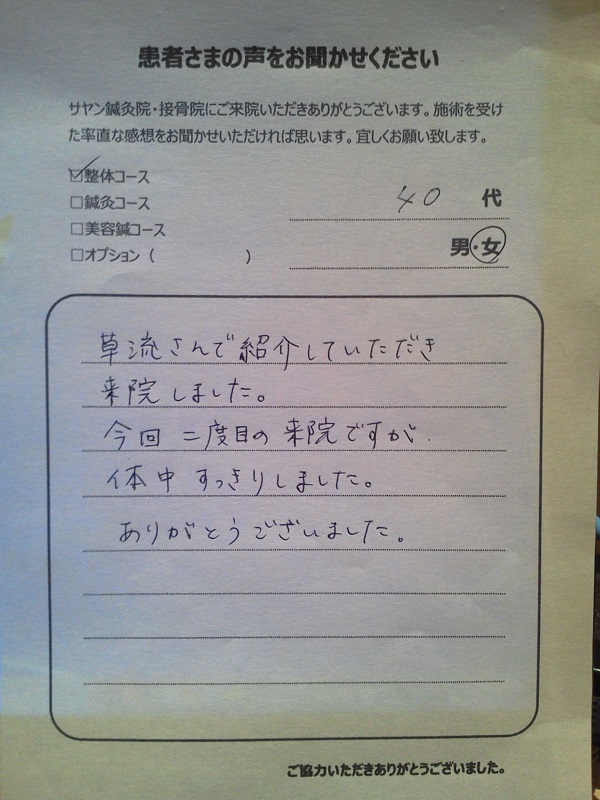 患者さまの声をお聞かせください
サヤン鍼灸院・接骨院にご来院いただきありがとうございます。施術を受け
た率直な感想をお聞かせいただければ思います。宜しくお願い致します。
☑整体コース
□鍼灸コース
40 代
□美容鍼コース
男・女
□オプション ( )
草流さんで紹介していただき
来院しました。
今回 二度目の来院ですが.
体中すっきりしました。
ありがとうございました。
ご協力いただきありがとうございました。